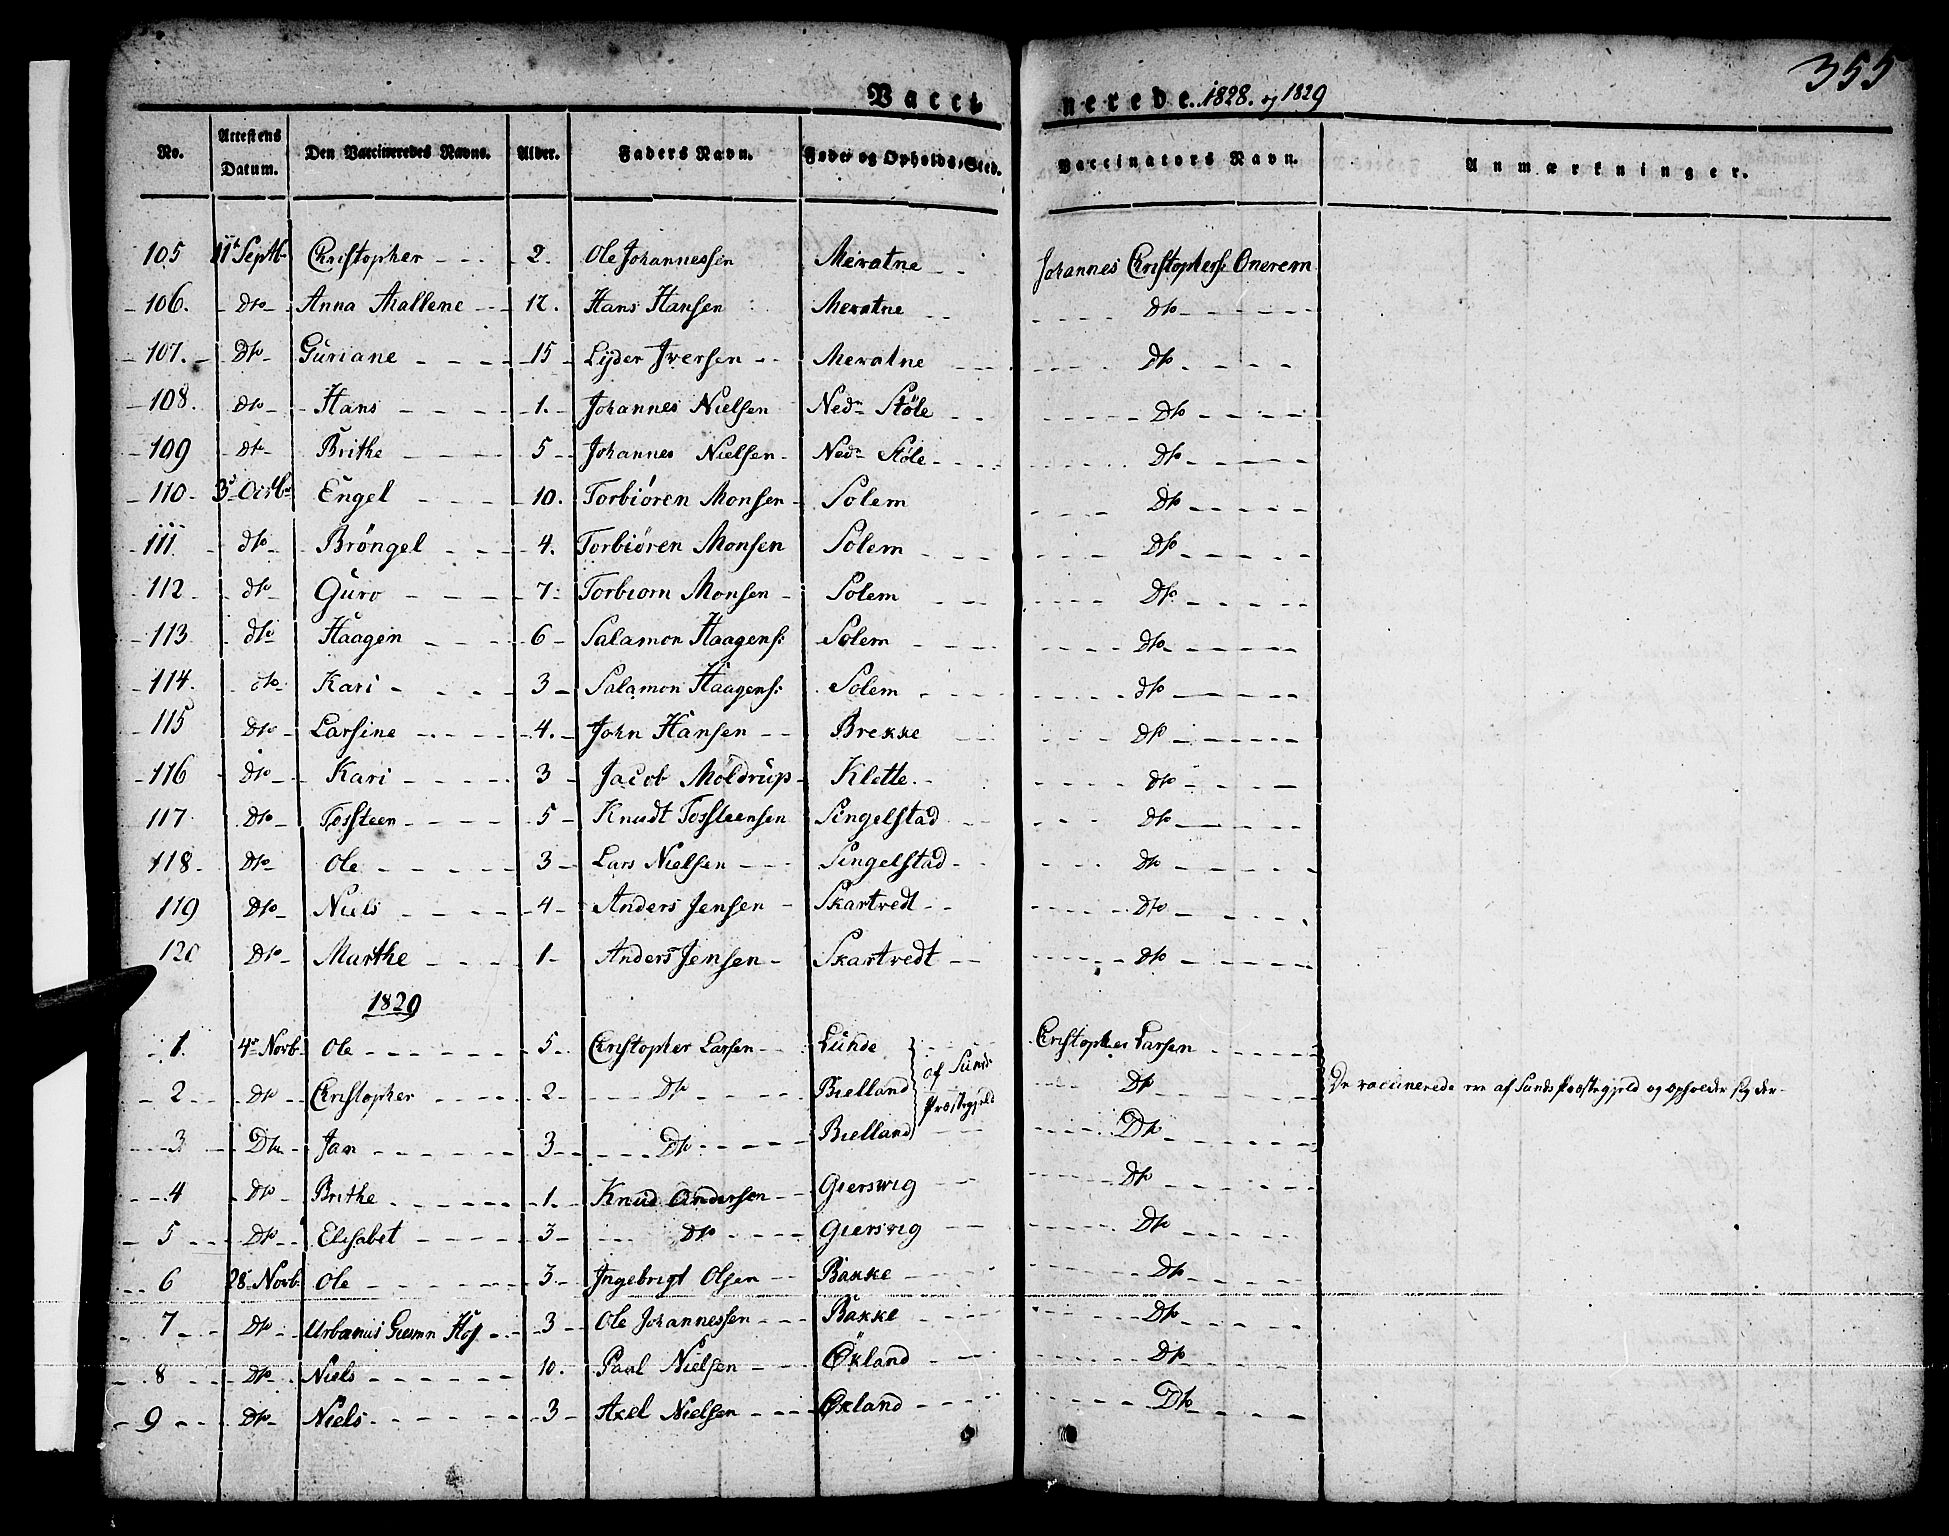 355
Vaccinerede. 1828. og 1829
No. Attestens Datum. Den Vaccineredes Navne. Alder. Faders Navn. Føde- og Opholds-Sted. Vaccinators Navn. Anmærkninger.
105 11te Septb Christopher 2. Ole Johannessen Meratne Johannes Christophers: Onerem
106. Dto Anna Mallene 12. Hans Hansen Meratne Dto
107. Dto Guriane 15 Lyder Iversen Meratne Dto
108. Dto Hans 1. Johannes Nielsen Nedre Støle Dto
109 Dto Brithe 5 Johannes Nielsen Nedre Støle Dto
110 3de Octbr Engel 10. Torbiören Monsen Solem Dto
111 dto Bröngel 4. Torbiören Monsen Solem Dto
112 dto Guro 7. Torbiorn Monsen Solem Dto
113 dto Haagen 6 Salamon Haagens: Solem Dto
114. dto Kari 3 Salamon Haagens: Solem dto
115 Dto Larsine 4. John Hansen Brekke Dto
116 Dto Kari 3 Jacob Möldrup Klette Dto
117 Dto Tossteen 5 Knudt Tossteensen Singelstad Dto
118. Dto Ole 3 Lars Nielsen Singelstad Dto
119 Dto Niels 4 Anders Jensen Skartvedt Dto
120 Dto Marthe 1 Anders Jensen Skartvedt Dto
1829
1. 4de Novb Ole 5 Christopher Larsen Lunde Christopher Larsen
2 Dto Christopher 2 Dto Bielland af Sunds Præstegjeld Dto De vaccinerede ere af Sunds Præstegjeld og opholder sig der
3 Dto Jan 3 Dto Bielland Dto
4 Dto Brithe 1. Knud Andersen Gierswig Dto
5 Dto Elisabet 3 Dto Giersvig Dto
6 28 Novb Ole 3 Ingebrigt Olsen Bakke Dto
7 Dto Urbanus Hof 3 Ole Johannessen Bakke Dto
8 Dto Niels 10. Paul Nielsen Økland Dto
9 Dto Niels 3 Axel Nielsen Økland Dto